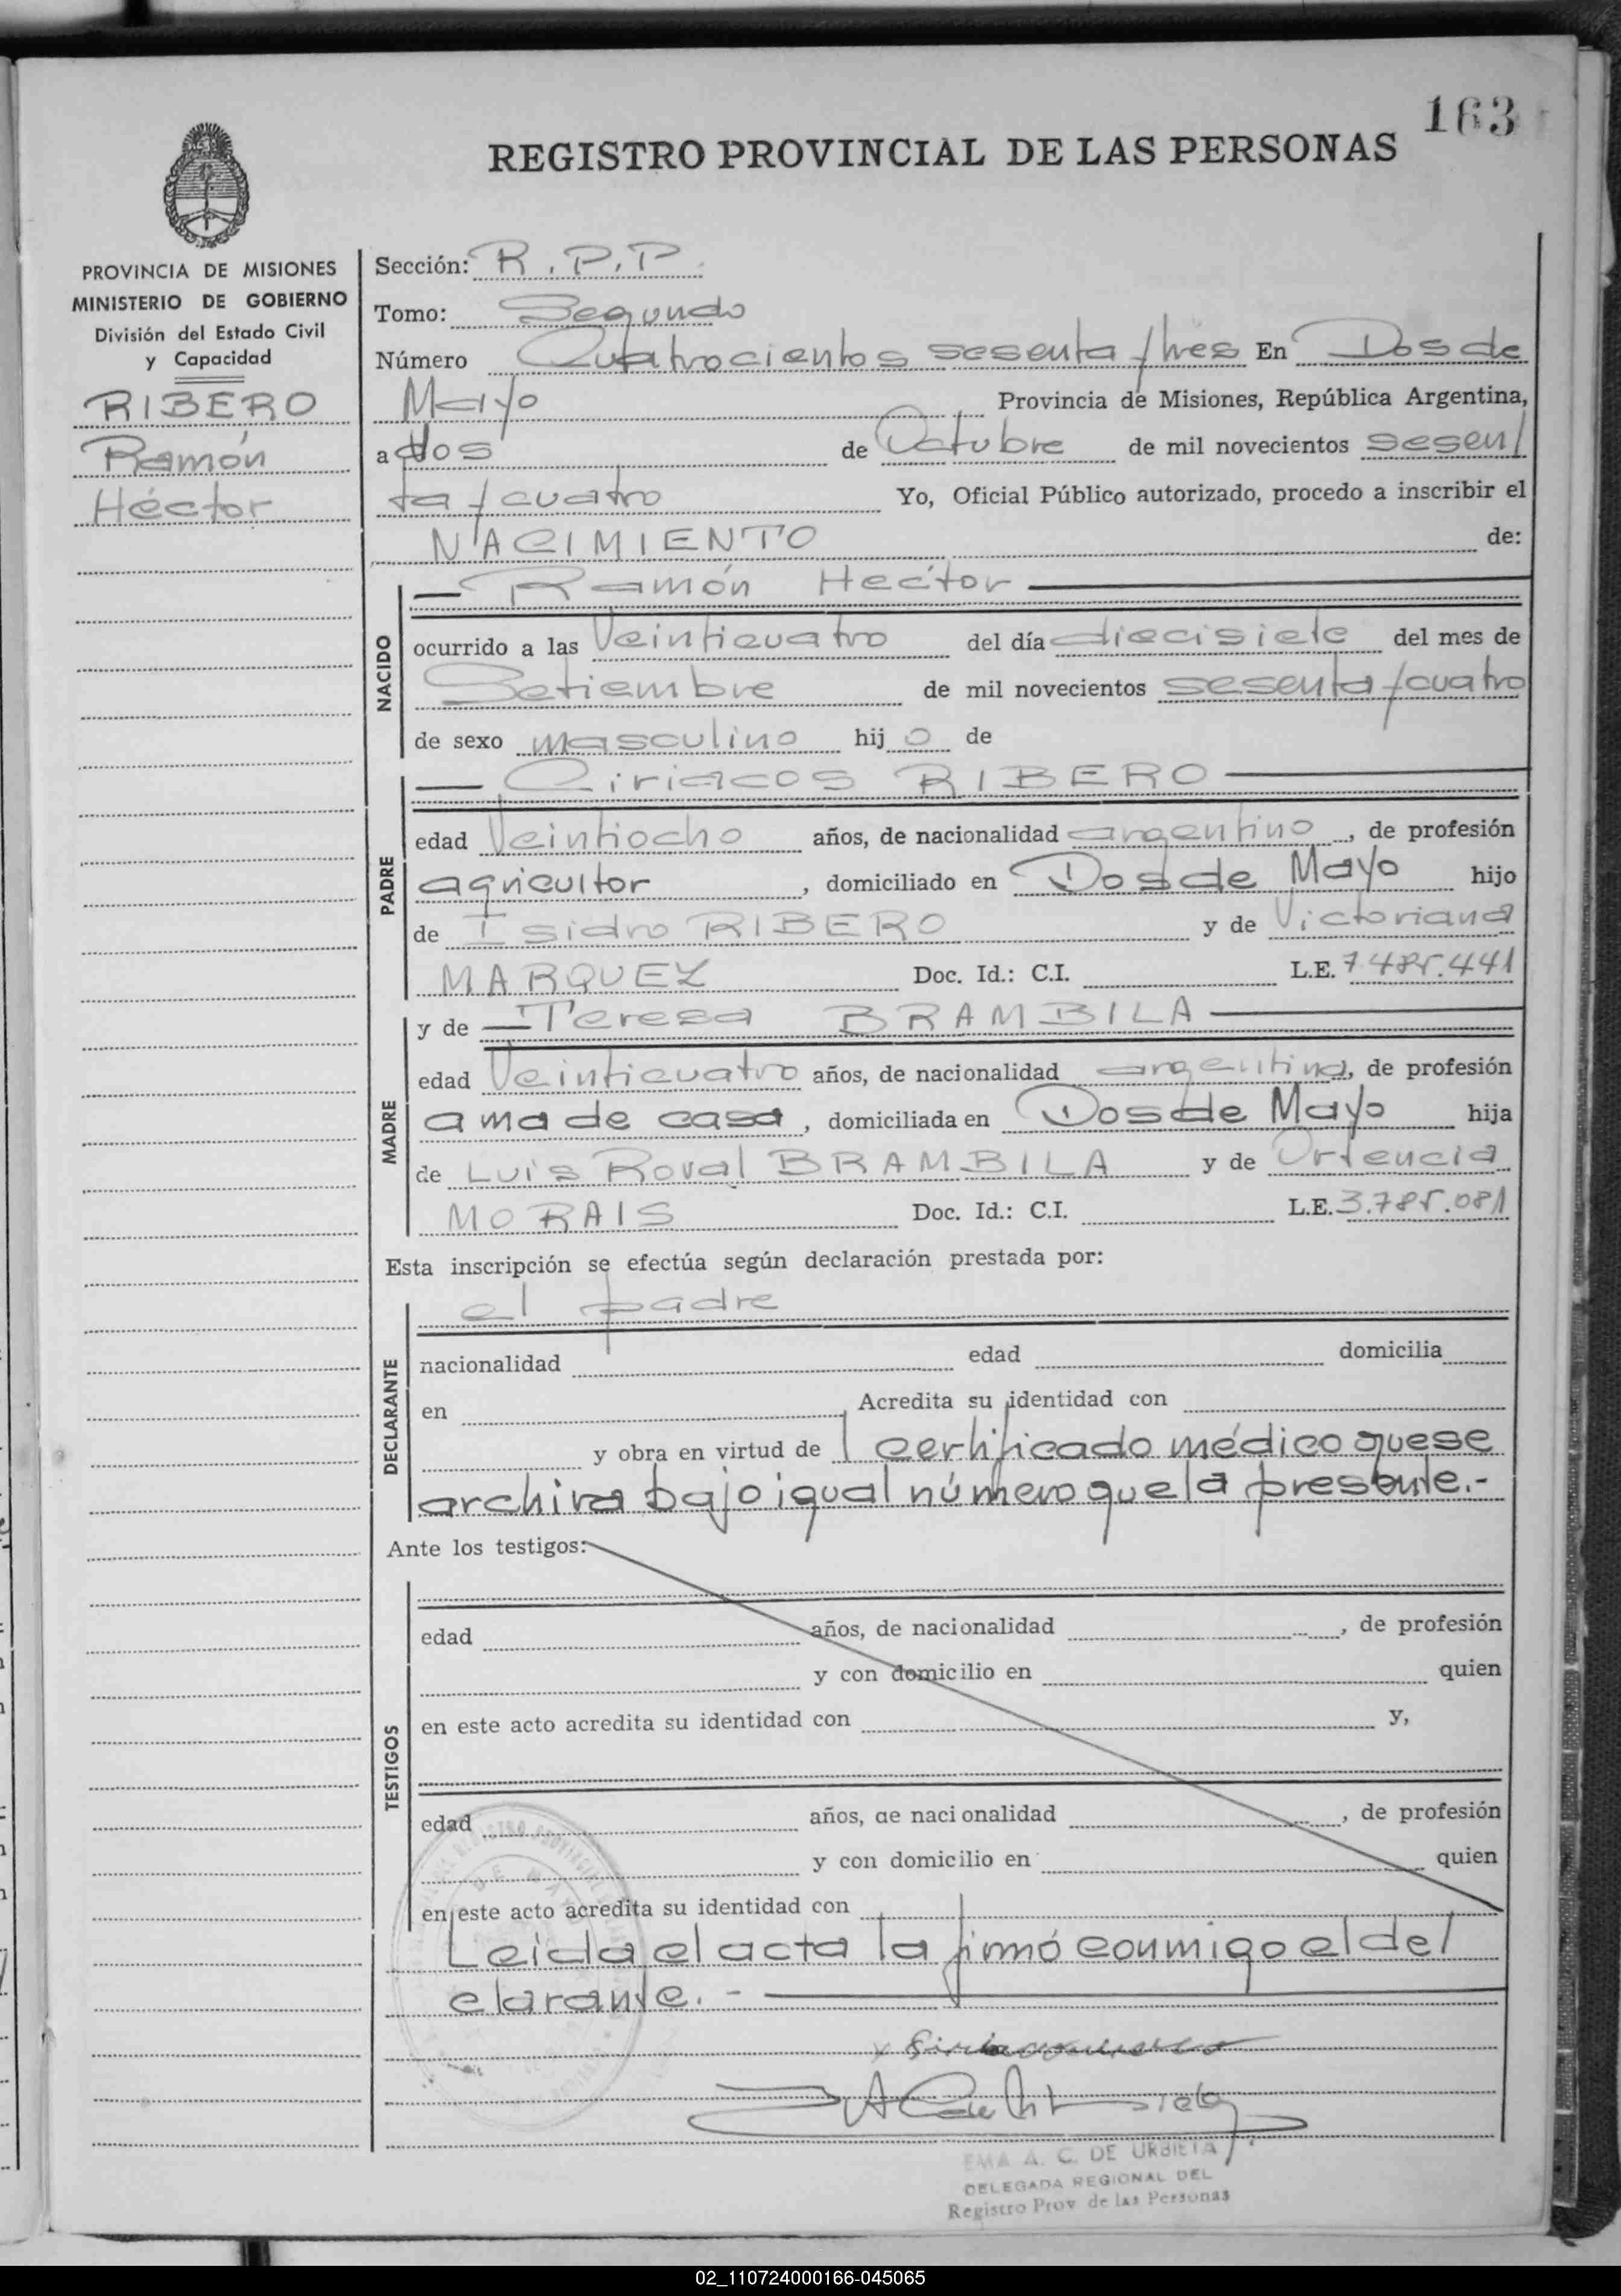 163
REGISTRO PROVINCIAL DE LAS PERSONAS
PROVINCIA DE MISIONES
MINISTERIO DE GOBIERNO
División del Estado Civil
y Capacidad
RIBERO
Ramón
Héctor
Sección: R.P.P.
Tomo: Segundo
Número Cuatrocientos sesenta y tres En Dos de
Mayo Provincia de Misiones, República Argentina,
a dos de Octubre de mil novecientos sesen/
ta y cuatro Yo, Oficial Público autorizado, procedo a inscribir el
NACIMIENTO de:
NACIDO
— Ramón Hector —
ocurrido a las Veinticuatro del día diecisiete del mes de
Setiembre de mil novecientos sesenta y cuatro
de sexo masculino hij o de
PADRE
— Ciriacos RIBERO —
edad Veintiocho años, de nacionalidad argentino, de profesión
agricultor, domiciliado en Dos de Mayo hijo
de Isidro RIBERO y de Victoriana
MARQUEZ Doc. Id.: C.I. L.E. 7.485.441
MADRE
y de — Teresa BRAMBILA —
edad Veinticuatro años, de nacionalidad argentina, de profesión
ama de casa, domiciliada en Dos de Mayo hija
de Luis Roval BRAMBILA y de Ortencia
MORAIS Doc. Id.: C.I. L.E. 3.785.081
Esta inscripción se efectúa según declaración prestada por:
DECLARANTE
el padre
nacionalidad edad domicilia
en Acredita su identidad con
y obra en virtud de 1 certificado médico que se
archiva bajo igual número que la presente.-
Ante los testigos:
TESTIGOS
edad años, de nacionalidad , de profesión
y con domicilio en quien
en este acto acredita su identidad con y,
edad años, de nacionalidad , de profesión
y con domicilio en quien
en este acto acredita su identidad con
Leida el acta la firmó conmigo el de/
clarante. - —
EMA A. C. DE URBIETA
DELEGADA REGIONAL DEL
Registro Prov de las Personas
02_110724000166-045065